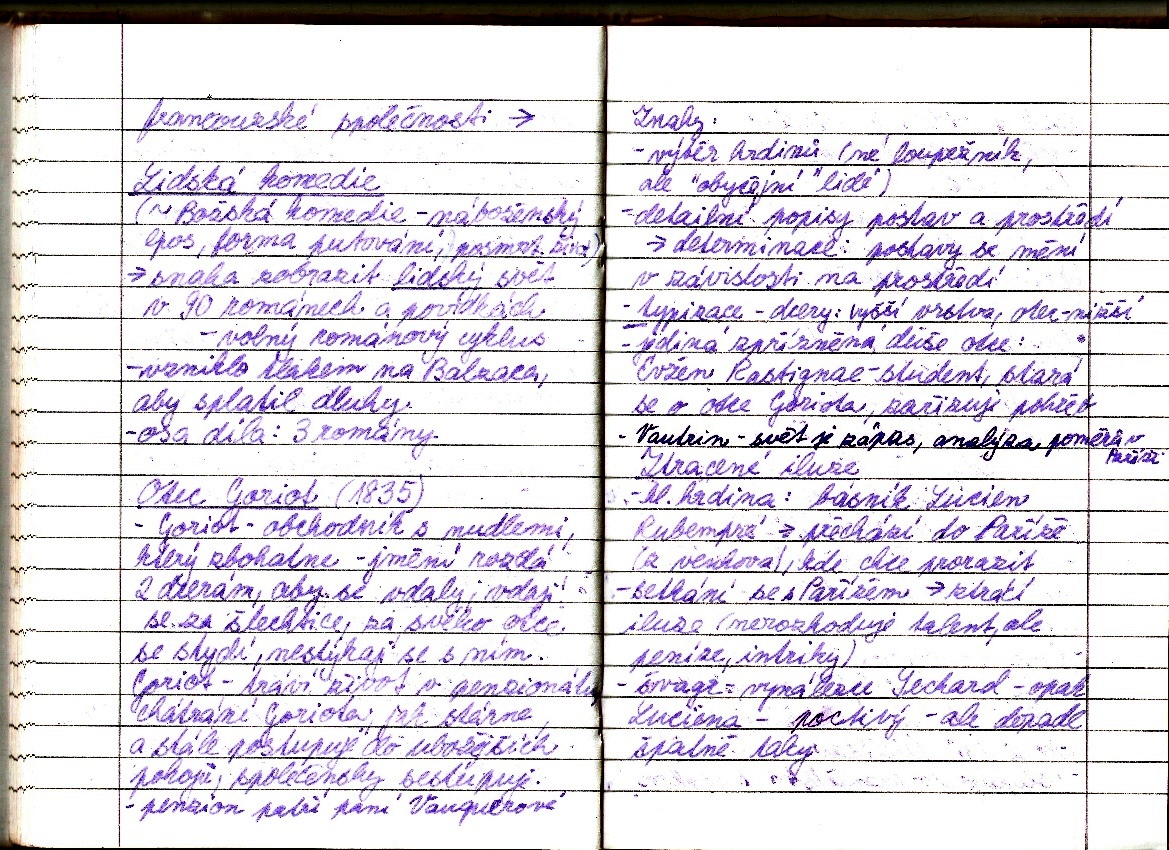 francouzské společnosti →
Lidská komedie
(~ Božská komedie - náboženský
epos, forma putování, posmrt. život)
→ snaha zobrazit lidský svět
v 90 románech a povídkách
- volný románový cyklus
- vznikla tlakem na Balzaca,
aby splatil dluhy.
- osa díla: 3 romány
Otec Goriot (1835)
- Goriot - obchodník s nudlemi,
který zbohatne - jmění rozdá
2 dcerám, aby se vdaly, vdají
se za šlechtice, za svého otce
se stydí, nestýkají se s ním.
Goriot - tráví život v penzionátu,
chátrání Goriota, jak stárne,
a stále postupuje do ubožejších
pokojů, společensky sestupuje.
- penzion patří paní Vauquerové
Znaky:
- výběr hrdinů (né loupežník,
ale "obyčejní" lidé)
- detailní popisy postav a prostředí
→ determinace: postavy se mění
v závislosti na prostředí
- typizace - dcery: vyšší vrstva, otec - nižší
- jediná spřízněná duše otce:
Evžen Rastignac - student, stará
se o otce Goriota, zařizuje pohřeb
- Vautrin - svět je zápas, analýza poměrů v
Paříži
Ztracené iluze
- hl. hrdina: básník Lucien
Rubempré → přechází do Paříže
(z venkova), kde chce prorazit
- setkání se s Paříží → ztrácí
iluze (nerozhoduje talent, ale
peníze, intriky)
- švagr = vynálezce Sechard - opak
Luciena - poctivý - ale dopadl
špatně taky